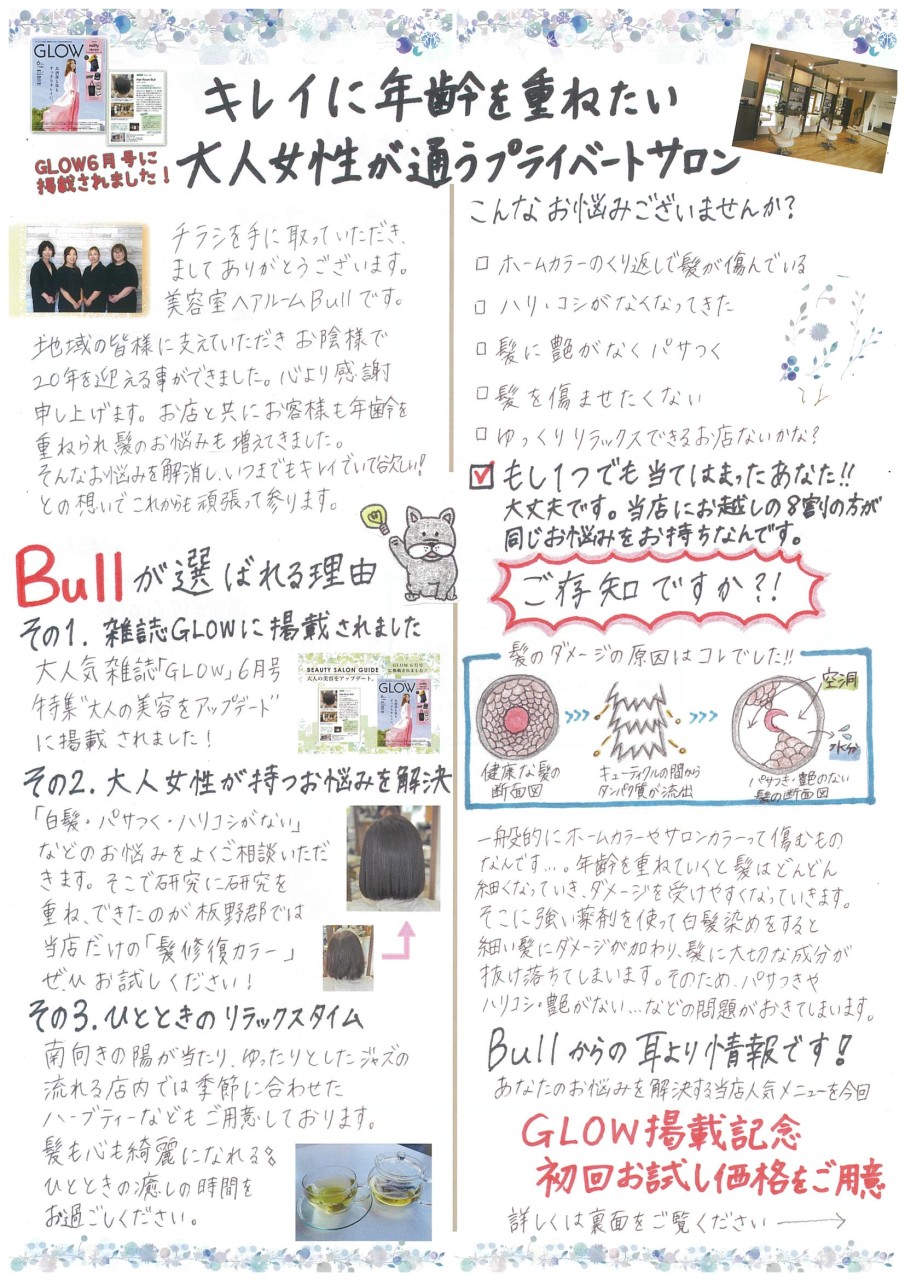 GLOW
GLOW6月号に
掲載されました！
キレイに年齢を重ねたい
大人女性が通うプライベートサロン
チラシを手に取っていただき、
ましてありがとうございます。
美容室ヘアルームBullです。
地域の皆様に支えていただきお陰様で
20年を迎える事ができました。心より感謝
申し上げます。お店と共にお客様も年齢を
重ねられ髪のお悩みも増えてきました。
そんなお悩みを解消し、いつまでもキレイでいて欲しい！
との想いでこれからも頑張って参ります。
Bullが選ばれる理由
その1. 雑誌GLOWに掲載されました
大人気雑誌「GLOW」6月号
特集"大人の美容をアップデート"
に掲載されました！
BEAUTY SALON GUIDE
大人の美容をアップデート。
GLOW6月号
に掲載されました！
GLOW
その2. 大人女性が持つお悩みを解決
「白髪・パサつく・ハリコシがない」
などのお悩みをよくご相談いただ
きます。そこで研究に研究を
重ね、できたのが板野郡では
当店だけの「髪修復カラー」
ぜひお試しください！
その3. ひとときのリラックスタイム
南向きの陽が当たり、ゆったりとしたジャズの
流れる店内では季節に合わせた
ハーブティーなどもご用意しております。
髪も心も綺麗になれる
ひとときの癒しの時間を
お過ごしください。
こんなお悩みございませんか？
□ ホームカラーのくり返しで髪が傷んでいる
□ ハリ・コシがなくなってきた
□ 髪に艶がなくパサつく
□ 髪を傷ませたくない
□ ゆっくりリラックスできるお店ないかな？
☑ もし1つでも当てはまったあなた!!
大丈夫です。当店にお越しの8割の方が
同じお悩みをお持ちなんです。
ご存知ですか?!
髪のダメージの原因はコレでした!!
空洞
水分
健康な髪の
断面図
キューティクルの間から
タンパク質が流出
パサつき・艶のない
髪の断面図
一般的にホームカラーやサロンカラーって傷むもの
なんです…。年齢を重ねていくと髪はどんどん
細くなっていき、ダメージを受けやすくなっていきます。
そこに強い薬剤を使って白髪染めをすると
細い髪にダメージが加わり、髪に大切な成分が
抜け落ちてしまいます。そのため、パサつきや
ハリコシ・艶がない…などの問題がおきてしまいます。
Bullからの耳より情報です！
あなたのお悩みを解決する当店人気メニューを今回
GLOW掲載記念
初回お試し価格をご用意
詳しくは裏面をご覧ください →